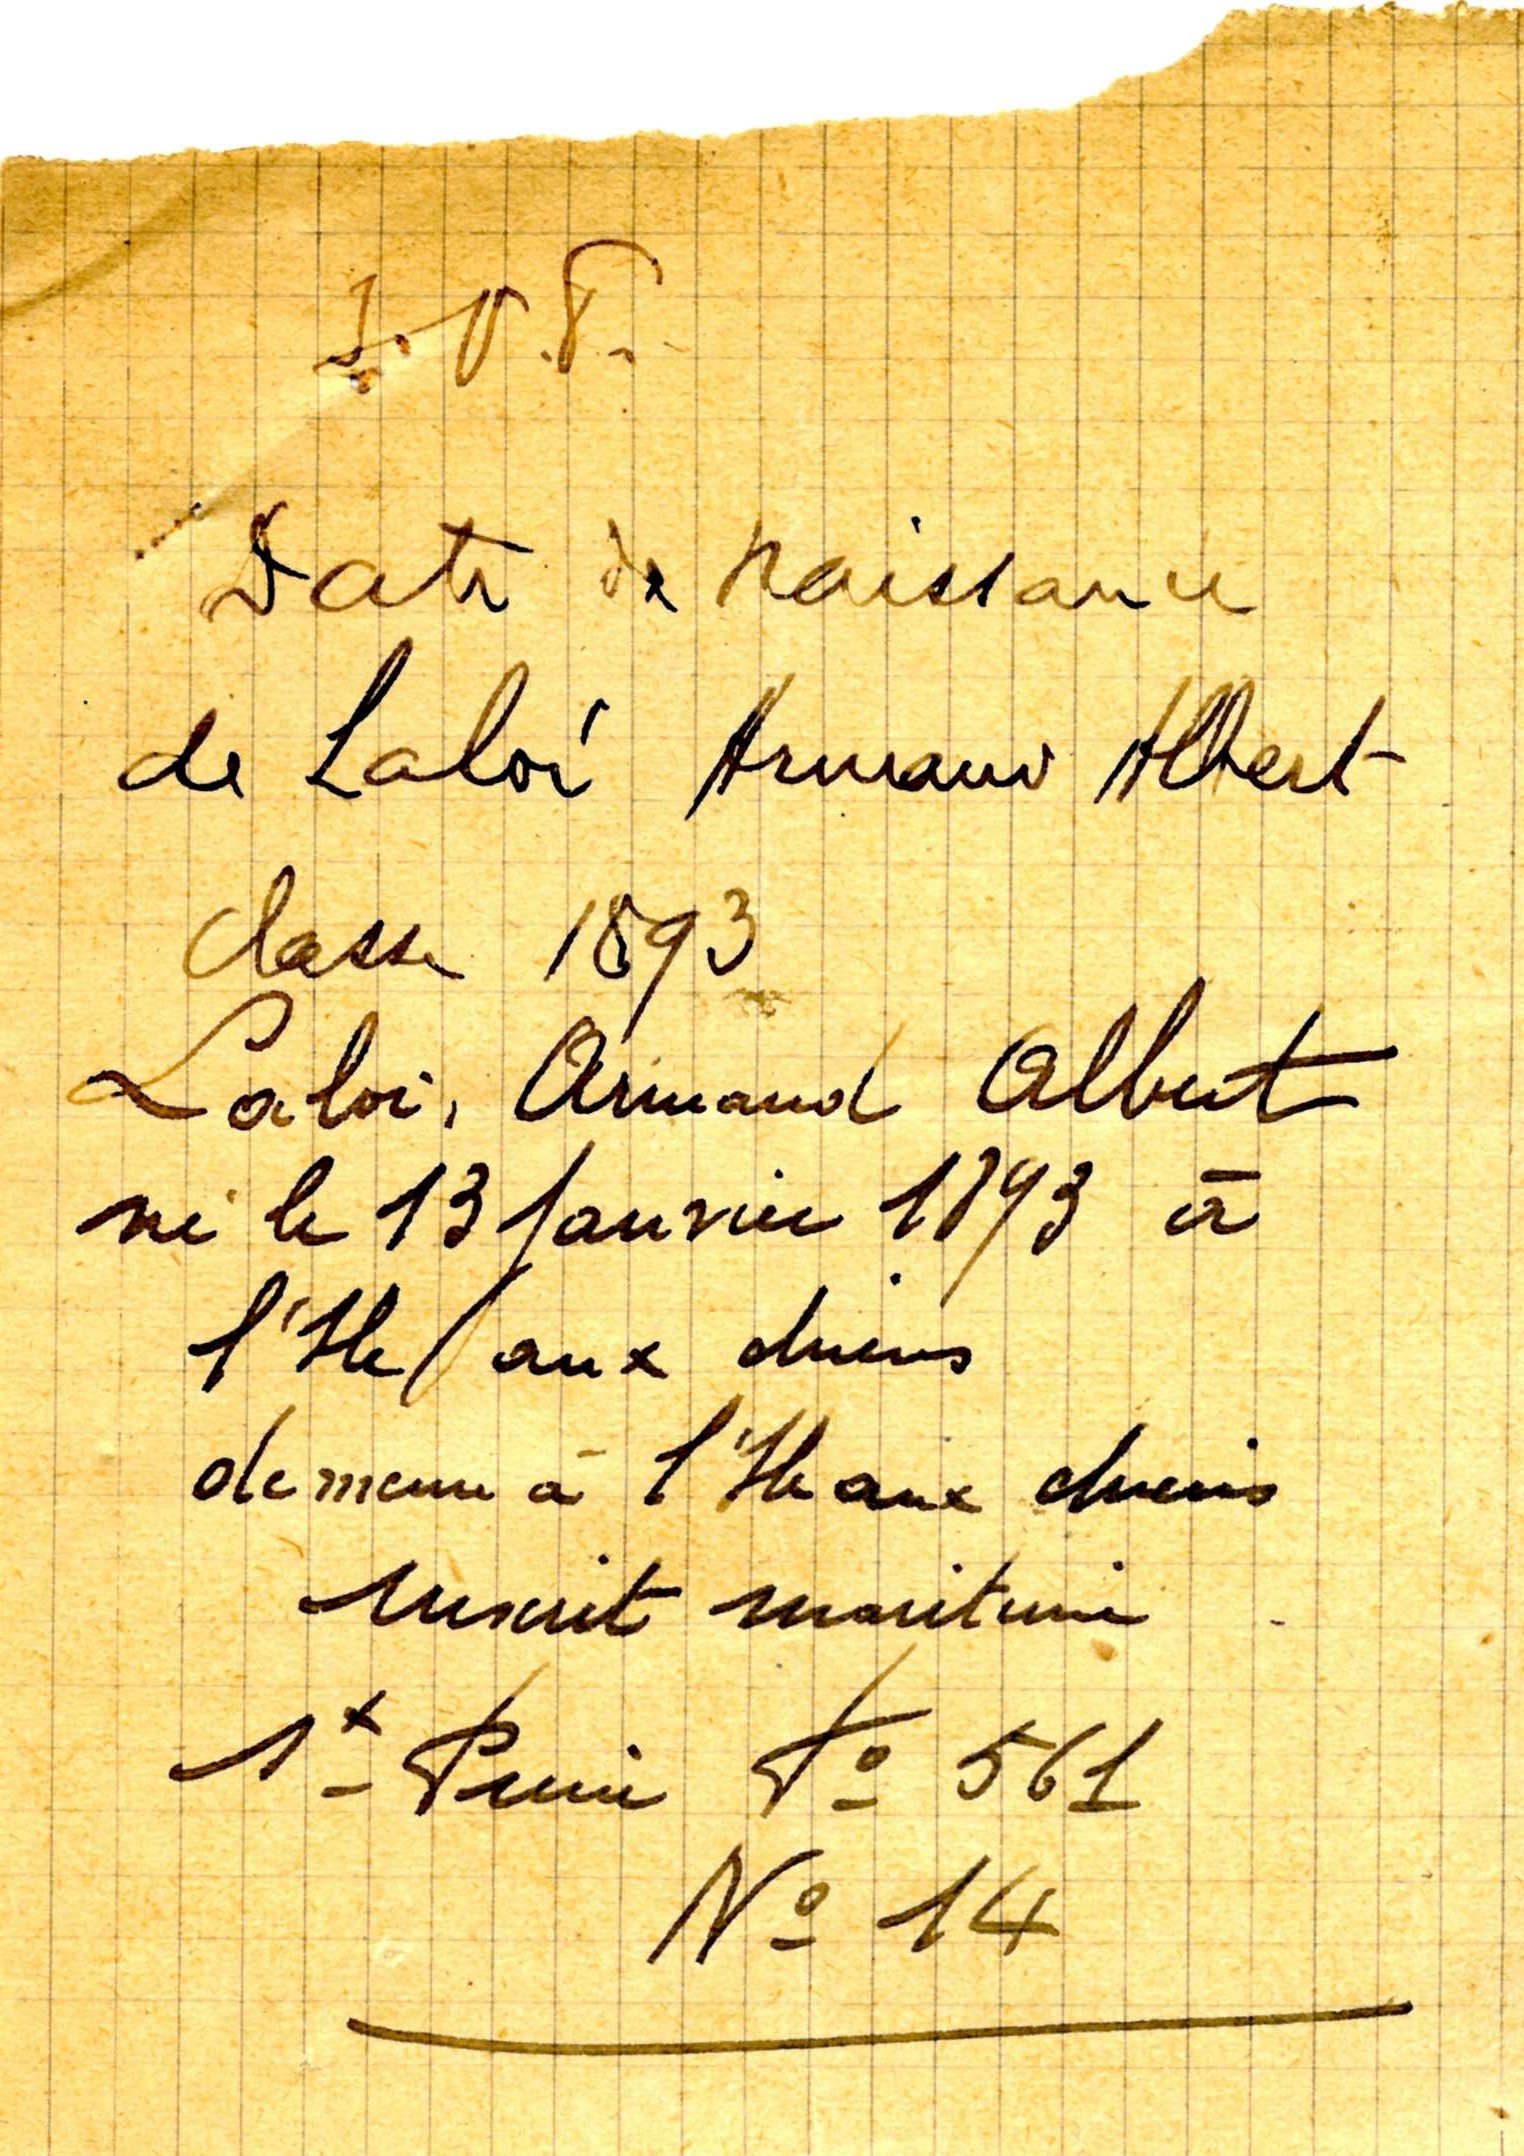 S.V.P.
Date de Naissance
de Laloi Armand Albert
Classe 1893
Laloi, Armand Albert
né le 13 Janvier 1893 à
l'Ile aux chiens
demeure à l'Ile aux chiens
inscrit maritime
St Pierre Fo 561
No 14